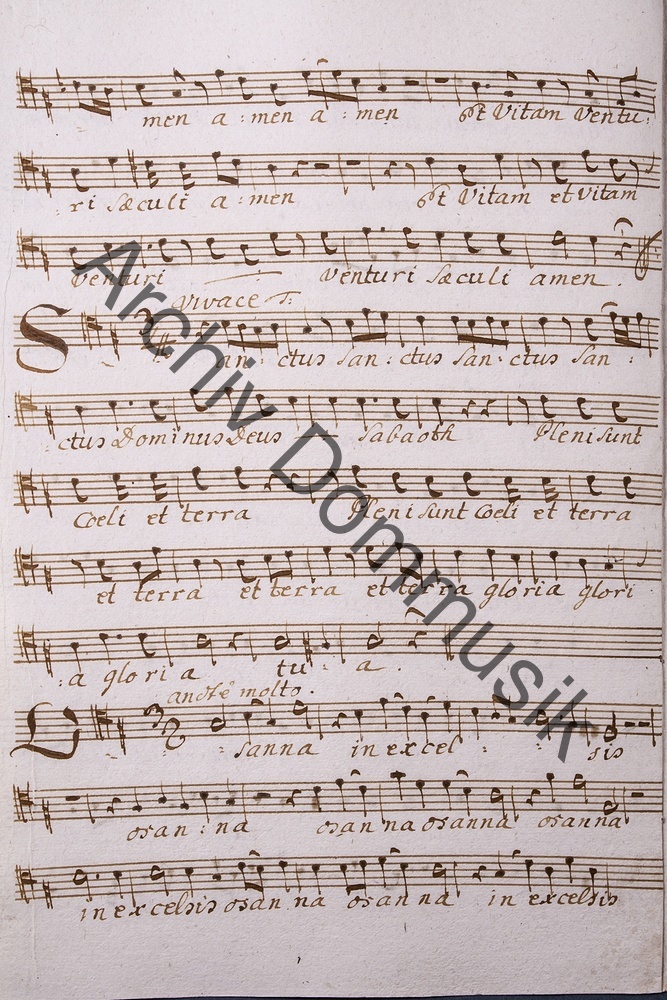 men a : men a : men et Vitam Ventu :
ri sæculi a : men et Vitam et Vitam
Venturi venturi sæculi amen .
Vivace T:
San : ctus san : ctus san : ctus san :
ctus Dominus Deus sabaoth Pleni sunt
Coeli et terra Pleni sunt Coeli et terra
et terra et terra et terra gloria glori
: a gloria tu : a .
andte molto .
sanna in excel : : sis
osan : na osan na osanna osanna
in excelsis osan na osan na in excelsis
Archiv Dommusik